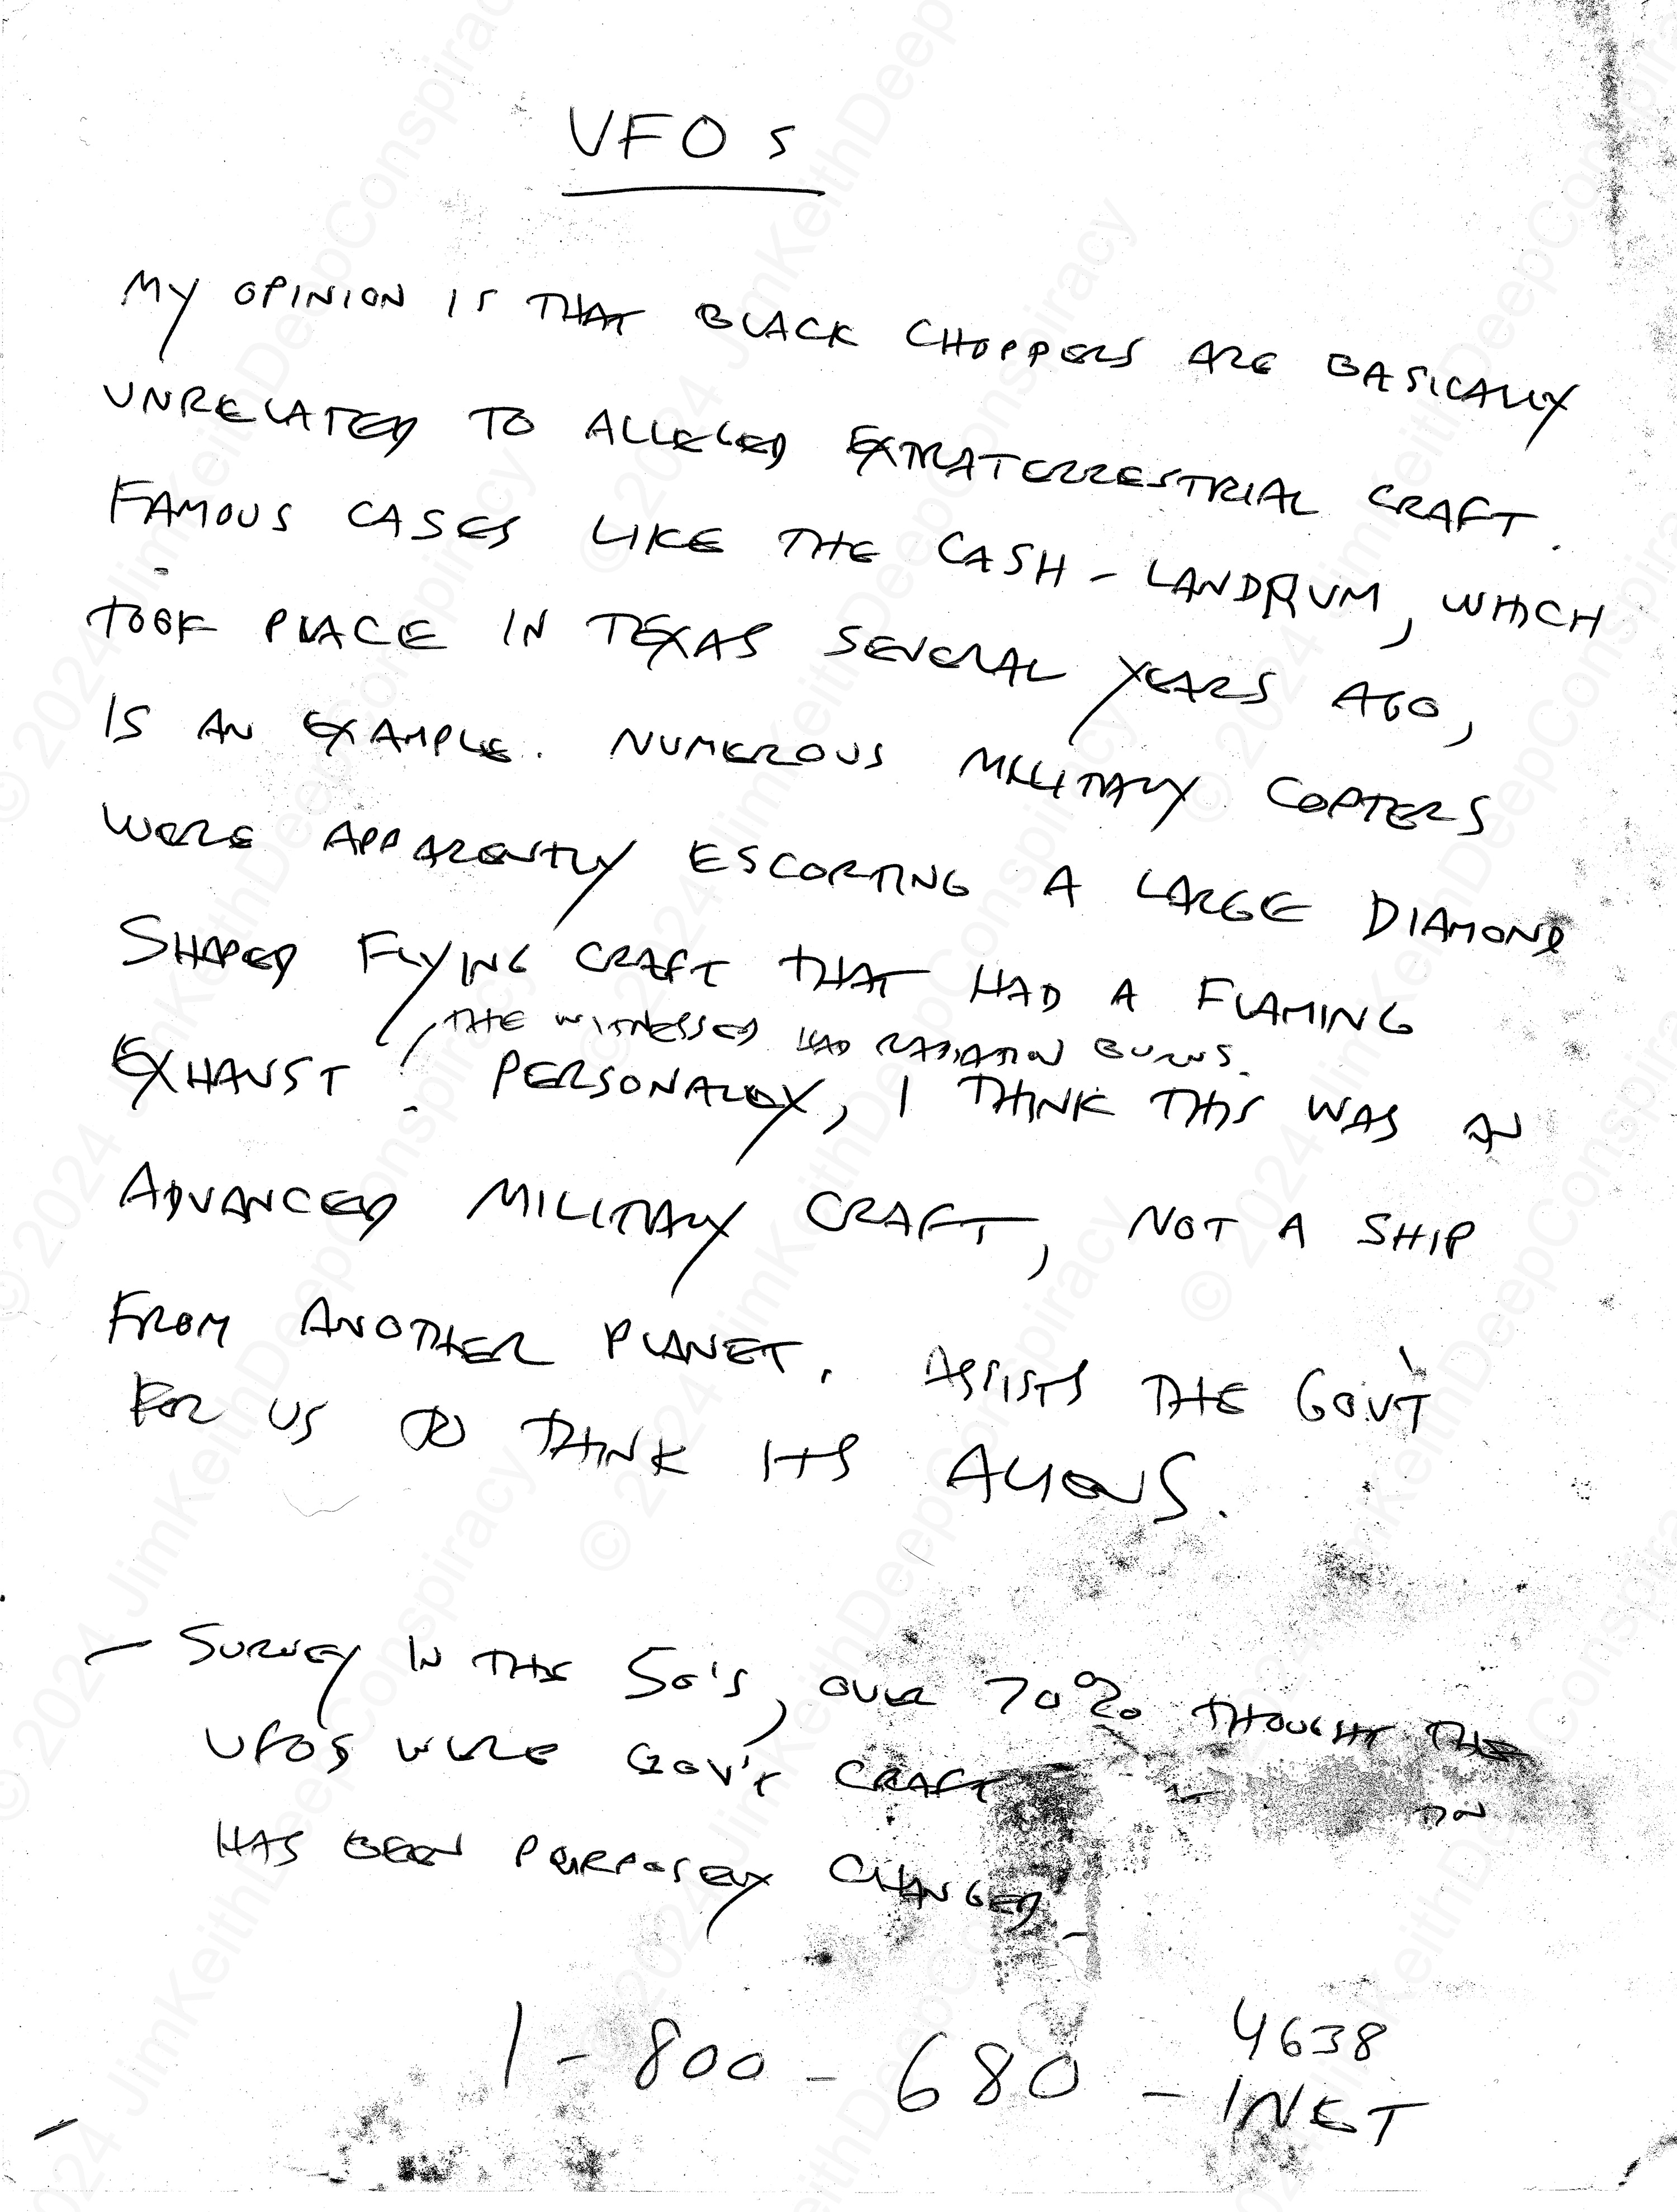 UFOs
MY OPINION IS THAT BLACK CHOPPERS ARE BASICALLY
UNRELATED TO ALLEGED EXTRATERRESTRIAL CRAFT.
FAMOUS CASES LIKE THE CASH-LANDRUM, WHICH
TOOK PLACE IN TEXAS SEVERAL YEARS AGO,
IS AN EXAMPLE. NUMEROUS MILITARY COPTERS
WERE APPARENTLY ESCORTING A LARGE DIAMOND
SHAPED FLYING CRAFT THAT HAD A FLAMING
THE WITNESSES HAD RADIATION BURNS.
EXHAUST. PERSONALLY, I THINK THIS WAS AN
ADVANCED MILITARY CRAFT, NOT A SHIP
FROM ANOTHER PLANET. ASSISTS THE GOV'T
FOR US TO THINK ITS ALIENS.
- SURVEY IN THE 50'S, OVER 70% THOUGHT THE
UFOS WERE GOV'T CRAFT
HAS BEEN PURPOSELY CHANGED
4638
1-800-680-INET
© 2024 JimKeithDeepConspiracy